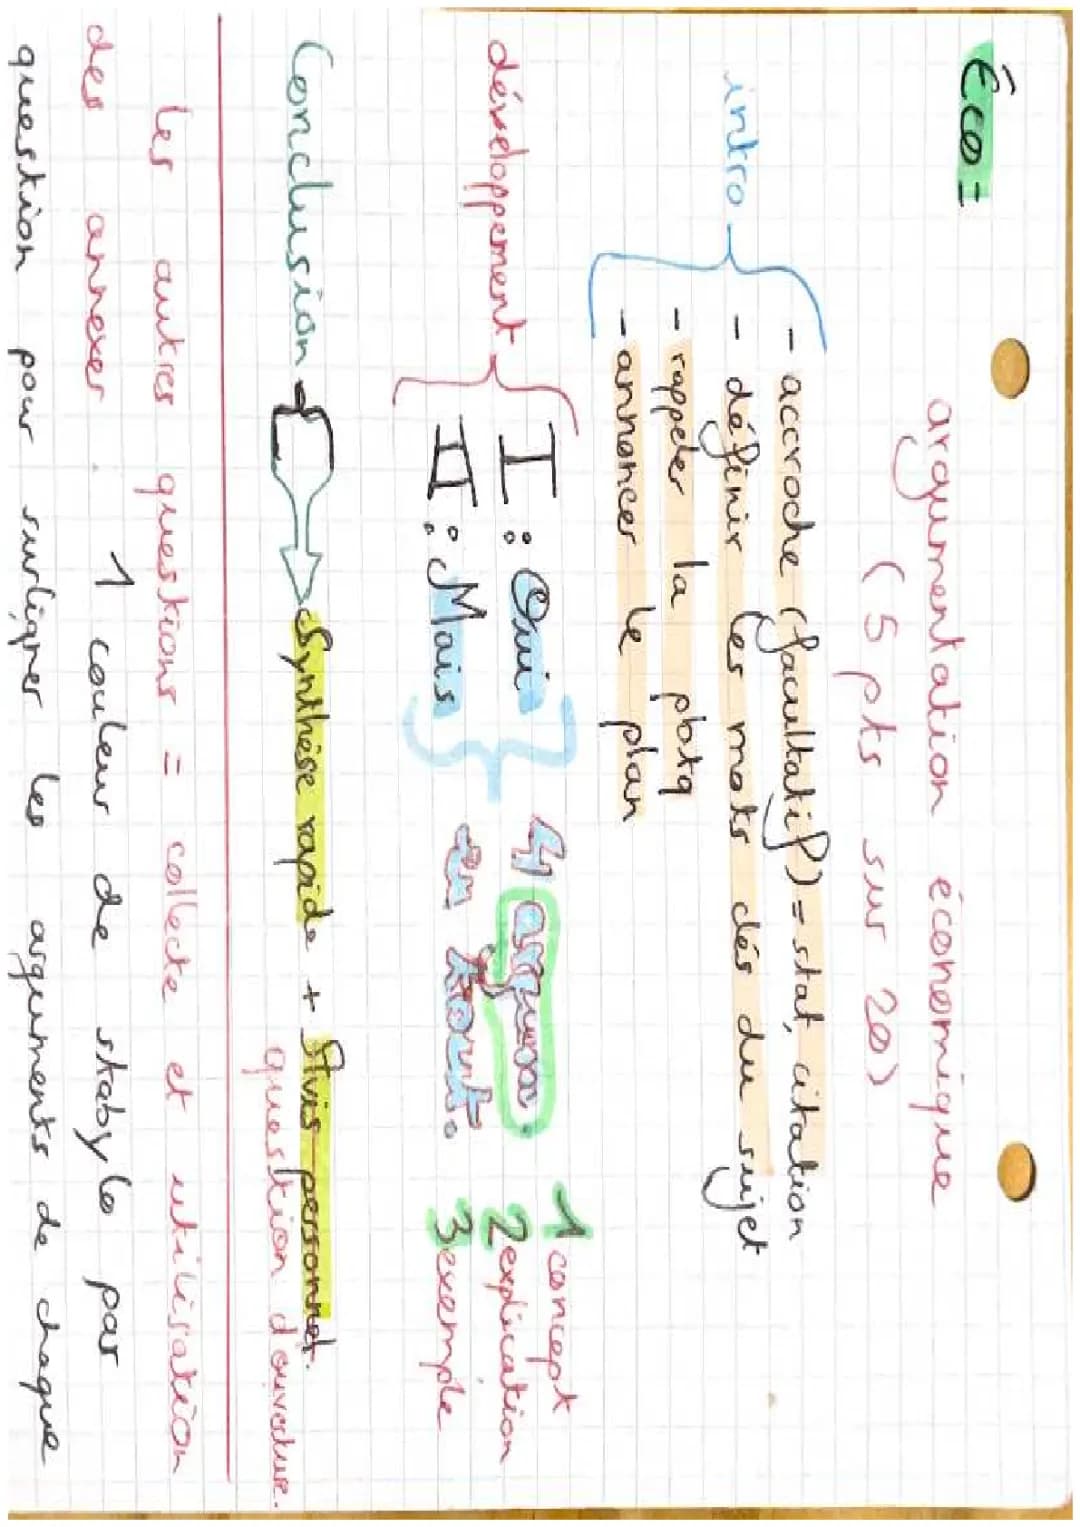 Éco =
argumentation économique
(5 pts sur 20)
intro
- accroche (facultatif) = stat, citation
- définir les mots clés du sujet
- rappeler la pbtq
- annoncer le plan
développement
I : Oui
II : Mais
4 argum.
en tout.
1 concept
2 explication
3 exemple
Conclusion → Synthèse rapide + Avis personnel.
question d'ouverture.
les autres questions = collecte et utilisation
des annexer. 1 couleur de stabylo par
question pour surligner les arguments de chaque